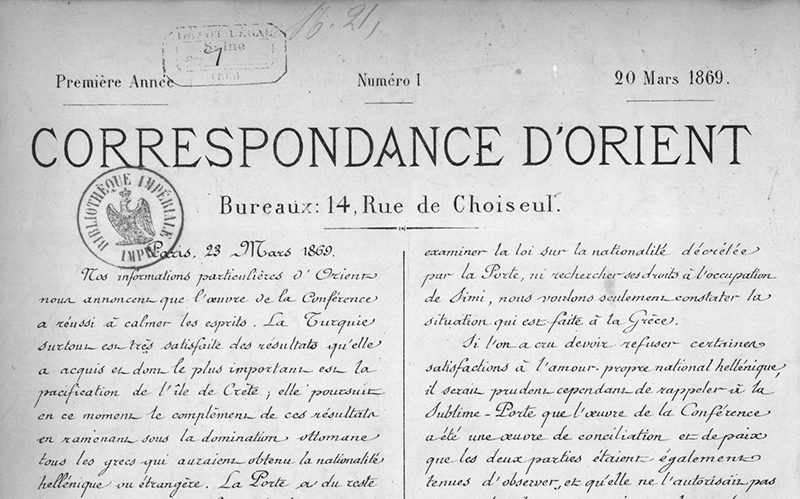 N. 21,
DÉPÔT LÉGAL
Seine
7
1869
Première Année
Numéro 1
20 Mars 1869.
CORRESPONDANCE D'ORIENT
Bureaux: 14, Rue de Choiseul.
BIBLIOTHÈQUE IMPÉRIALE
IMPR.
Paris, 23 Mars 1869.
Nos informations particulières d'Orient
nous annoncent que l'œuvre de la Conférence
a réussi à calmer les esprits. La Turquie
surtout est très satisfaite des résultats qu'elle
a acquis et dont le plus important est la
pacification de l'île de Crète; elle poursuit
en ce moment le complément de ces résultats
en ramenant sous la domination ottomane
tous les grecs qui auraient obtenu la nationalité
hellénique ou étrangère. La Porte a du reste
examiner la loi sur la nationalité décrétée
par la Porte, ni rechercher ses droits à l'occupation
de Simi, nous voulons seulement constater la
situation qui est faite à la Grèce.
Si l'on a cru devoir refuser certaines
satisfactions à l'amour-propre national hellénique,
il serait prudent cependant de rappeler à la
Sublime-Porte que l'œuvre de la Conférence
a été une œuvre de conciliation et de paix
que les deux parties étaient également
tenues d'observer, et qu'elle ne l'autorisait pas